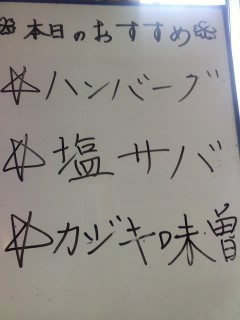 本日のおすすめ
☆ハンバーグ
☆塩サバ
☆カジキ味噌